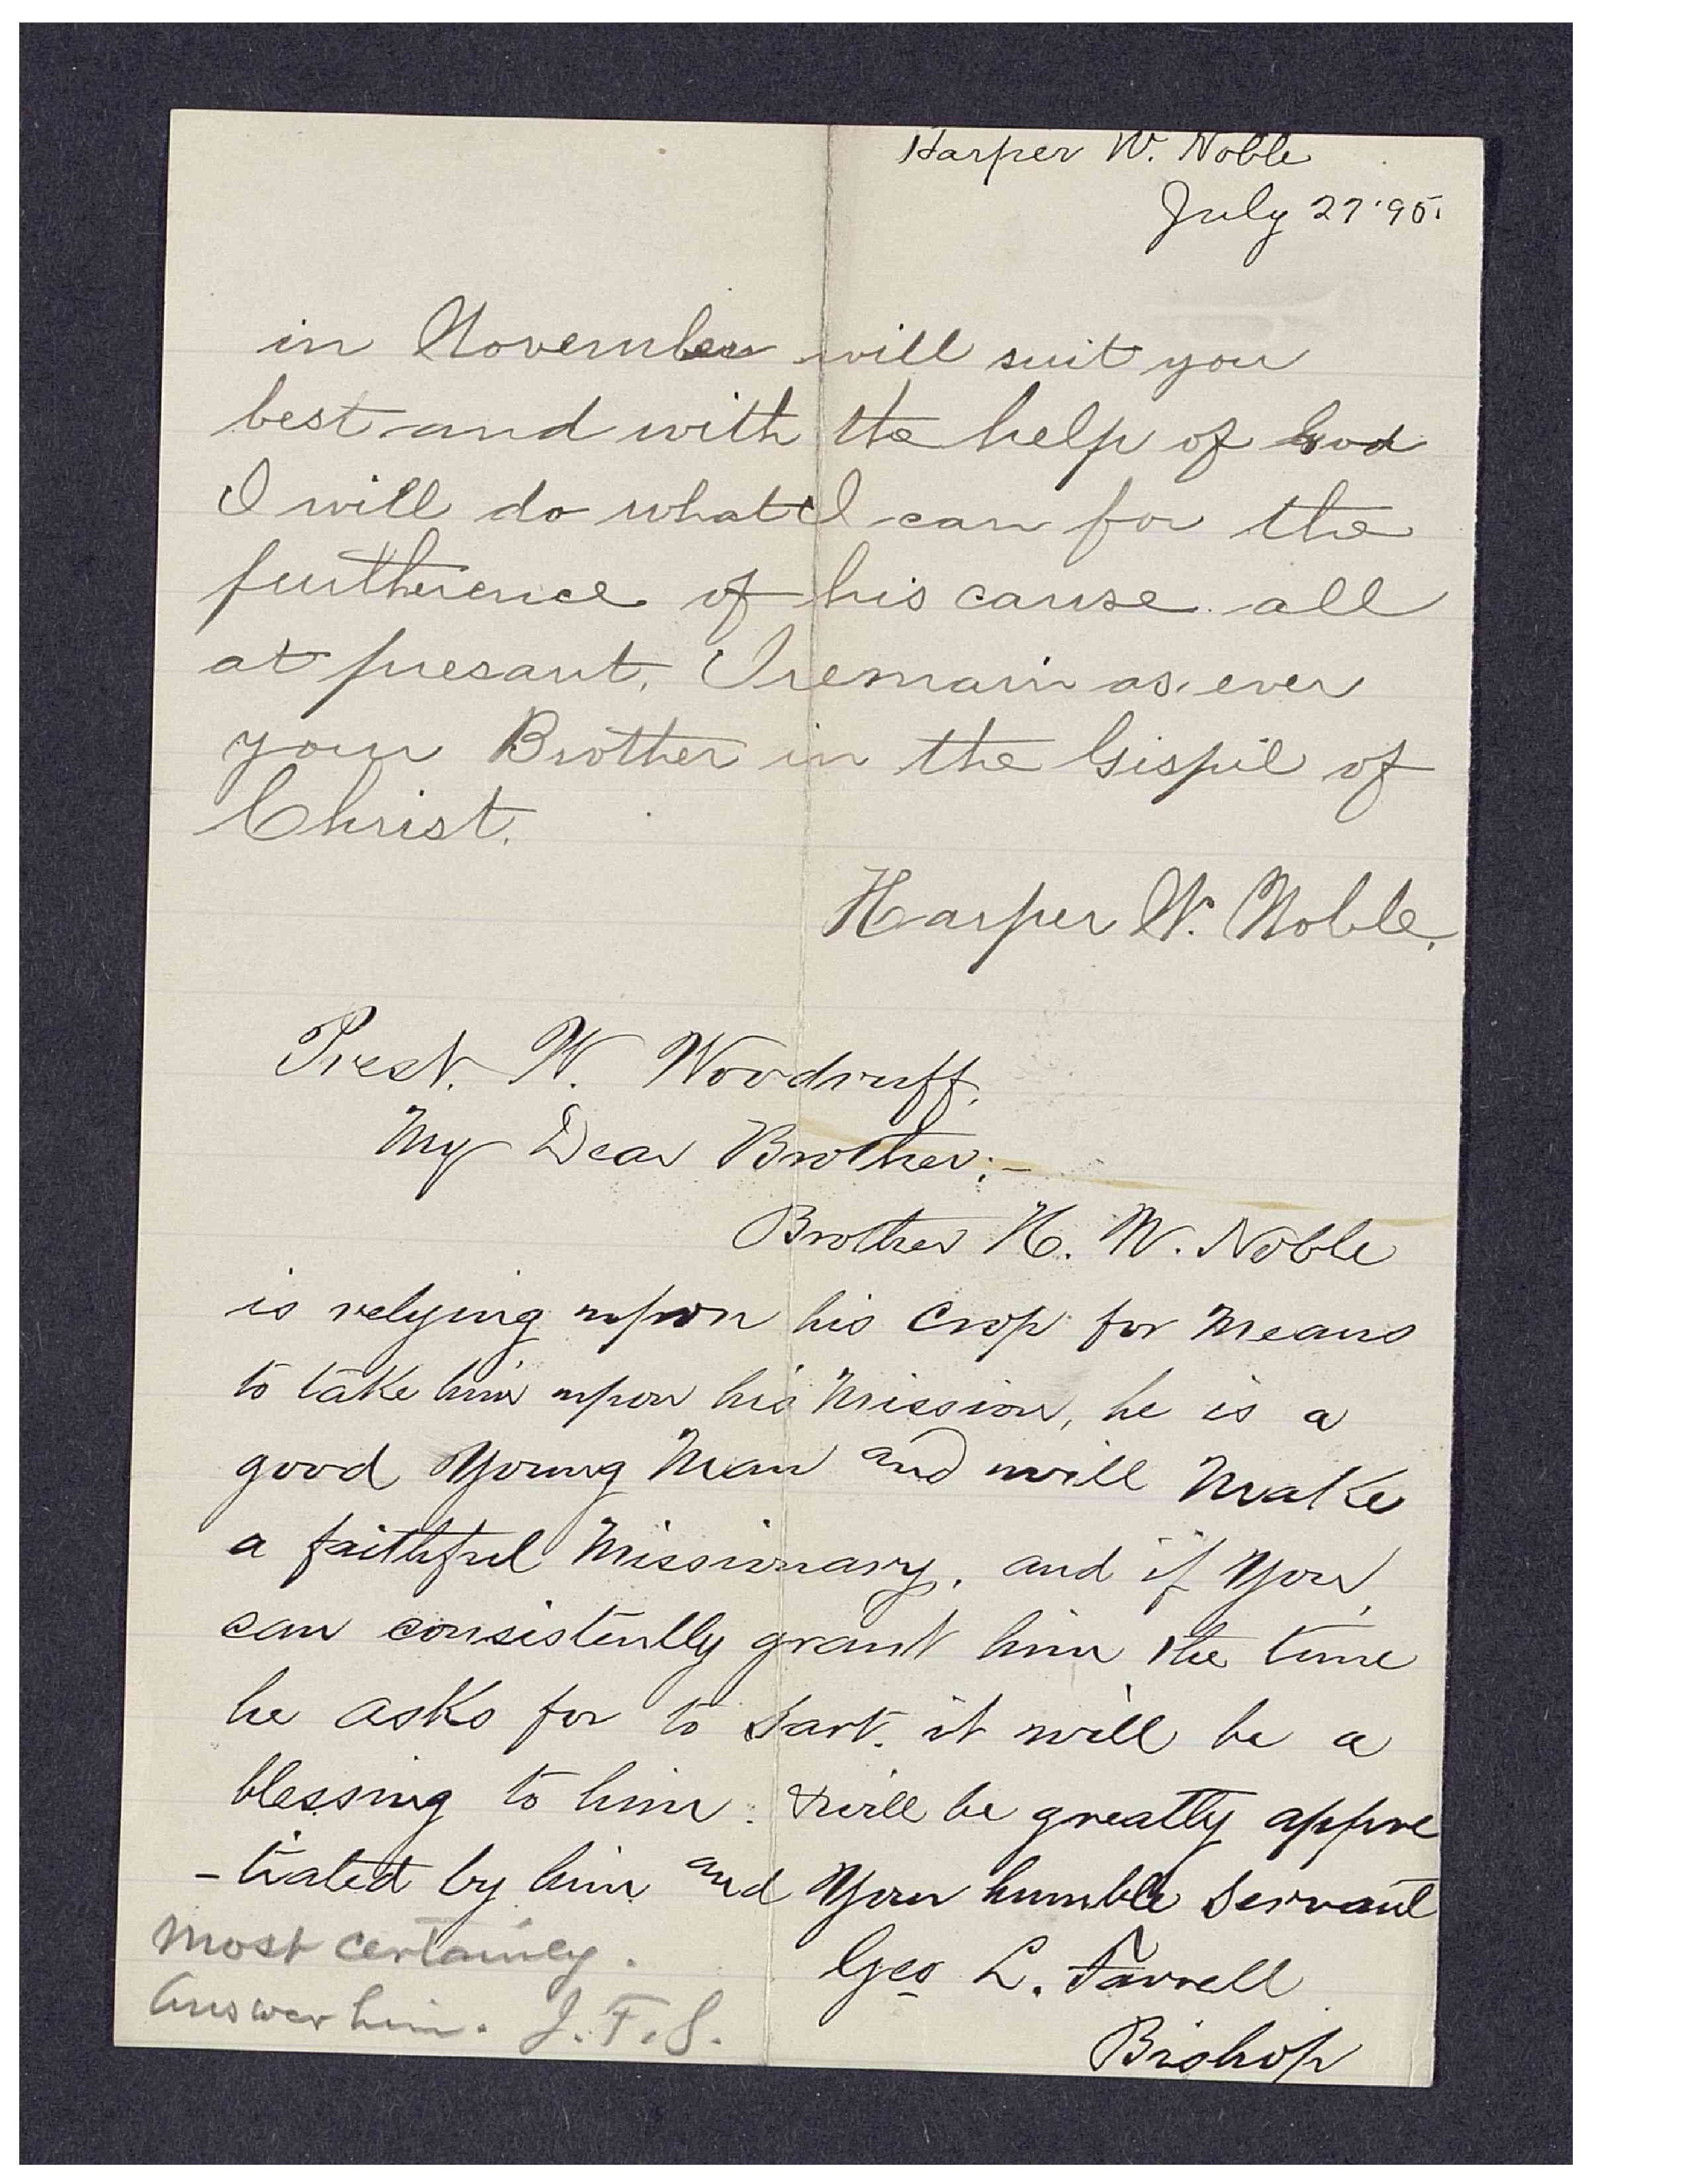 Harper W. Noble
July 27 '95.
in November will suit you
best and with the help of God
I will do what I can for the
furtherence of his cause. all
at presant. I remain as ever
your Brother in the Gispil of
Christ.
Harper W. Noble.
Prest. W. Woodruff.
My Dear Brother:-
Brother H. W. Noble
is relying upon his Crop for Means
to take him upon his Mission, he is a
good Young Man and will Make
a faithful Missionary. and if You
can consistently grant him the time
he asks for to Sart. it will be a
blessing to him. & will be greatly appre
-tiated by him and Your humble Servant
Geo L. Farrell
Bishop
Most certainly.
Answer him. J.F.S.